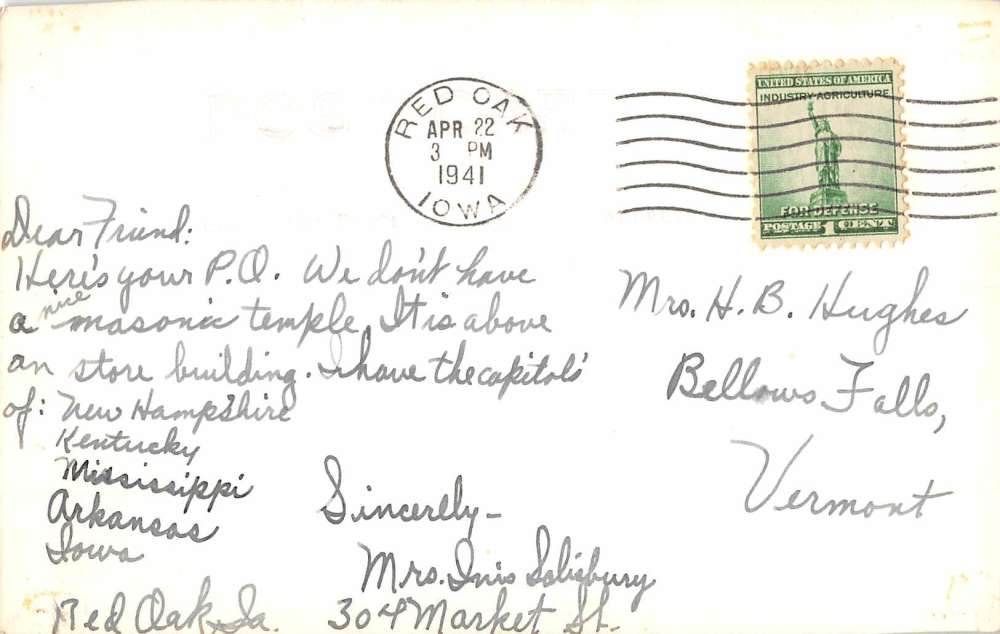 RED OAK
APR 22
3 PM
1941
IOWA
UNITED STATES OF AMERICA
INDUSTRY-AGRICULTURE
FOR DEFENSE
POSTAGE 1 CENT
Dear Friend:
Here's your P.O. We don't have
a nice masonic temple, It is above
an store building. I have the capitols'
of: New Hampshire
Kentucky
Mississippi
Arkansas
Iowa
Sincerely-
Mrs. Inis Salisbury
Red Oak, Ia. 304 Market St.
Mrs. H. B. Hughes
Bellows Falls,
Vermont